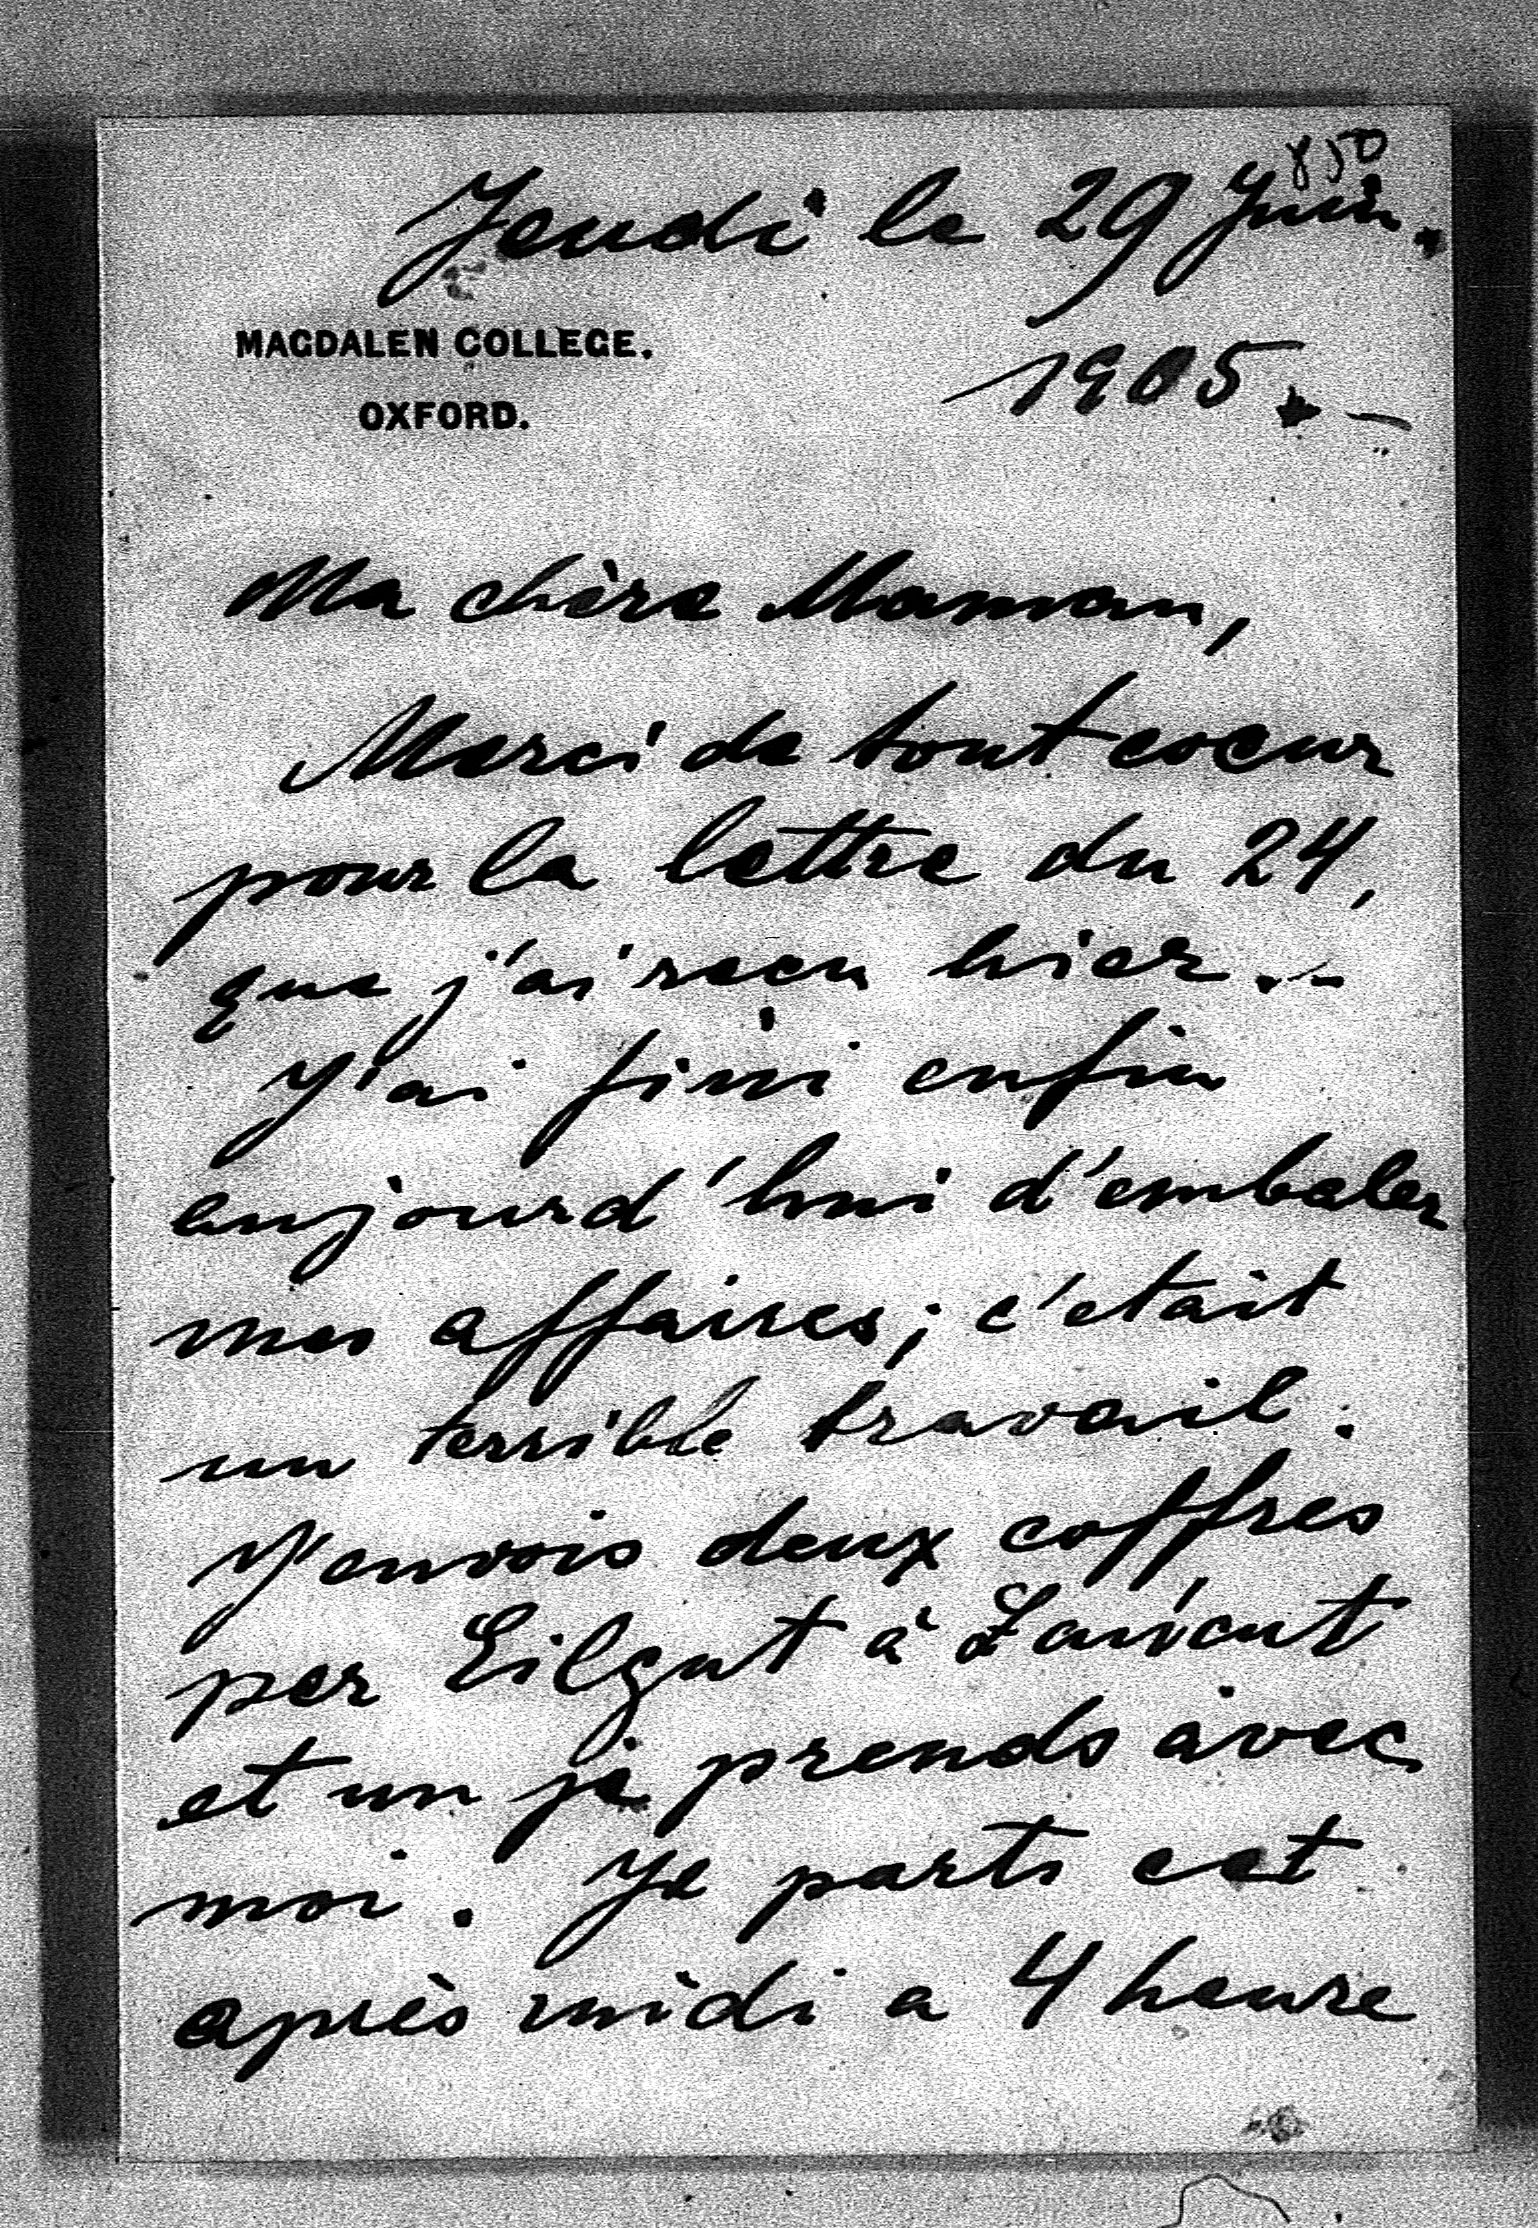 850
Jeudi le 29 Juin.
MAGDALEN COLLEGE.
OXFORD.
1905. –
Ma chère Maman,
Merci de tout coeur
pour la lettre du 24,
que j'ai recu hier. –
J'ai fini enfin
aujourd'hui d'embaler
mes affaires; c'etait
un terrible travail.
J'envois deux coffres
per Eilgut à
et un je prends avec
moi. Je parts cet
après midi a 4 heure